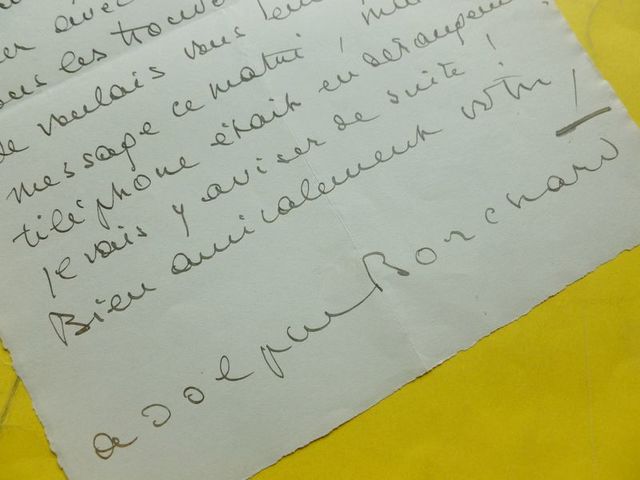 avec
les trouve
Je voulais vous
message ce matin, mon
téléphone était en dérangement.
Je vais y aviser de suite!
Bien amicalement votre
adolphe Borchard